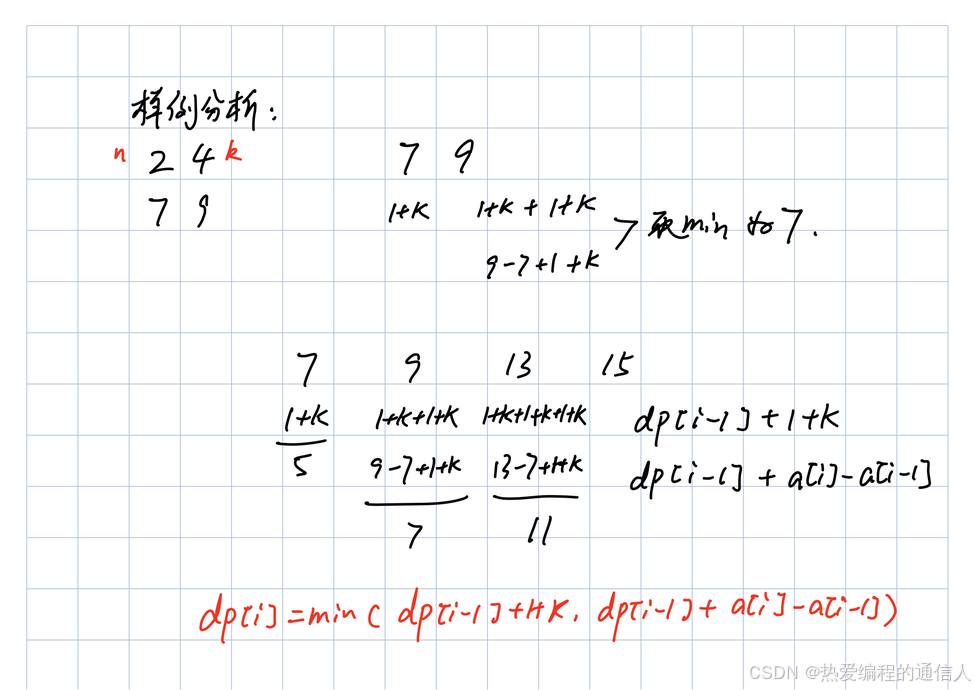 样例分析:
n 2 4 k
7 9
7 9
1+k 1+k+1+k
9-7+1+k
7 取min为7.
7 9 13 15
1+k 1+k+1+k 1+k+1+k+1+k dp[i-1]+1+k
5 9-7+1+k 13-7+1+k dp[i-1]+a[i]-a[i-1]
7 11
dp[i]=min(dp[i-1]+1+K, dp[i-1]+a[i]-a[i-1])
CSDN @热爱编程的通信人